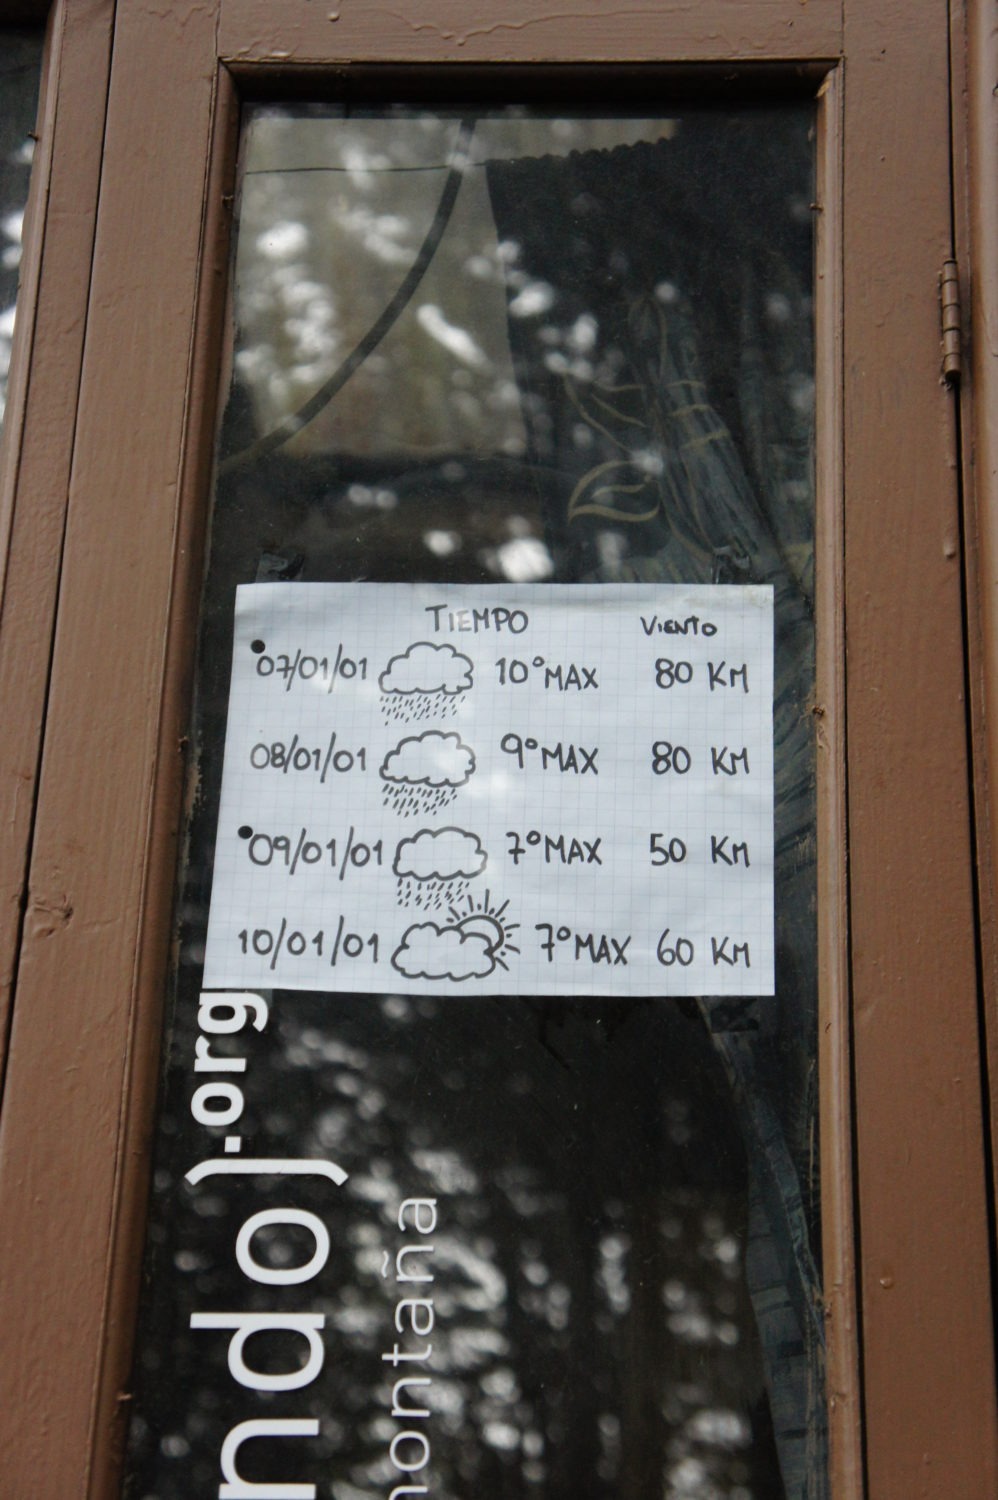 TIEMPO VIENTO
07/01/01 10° MAX 80 KM
08/01/01 9° MAX 80 KM
09/01/01 7° MAX 50 KM
10/01/01 7° MAX 60 KM
ndo).org
montaña